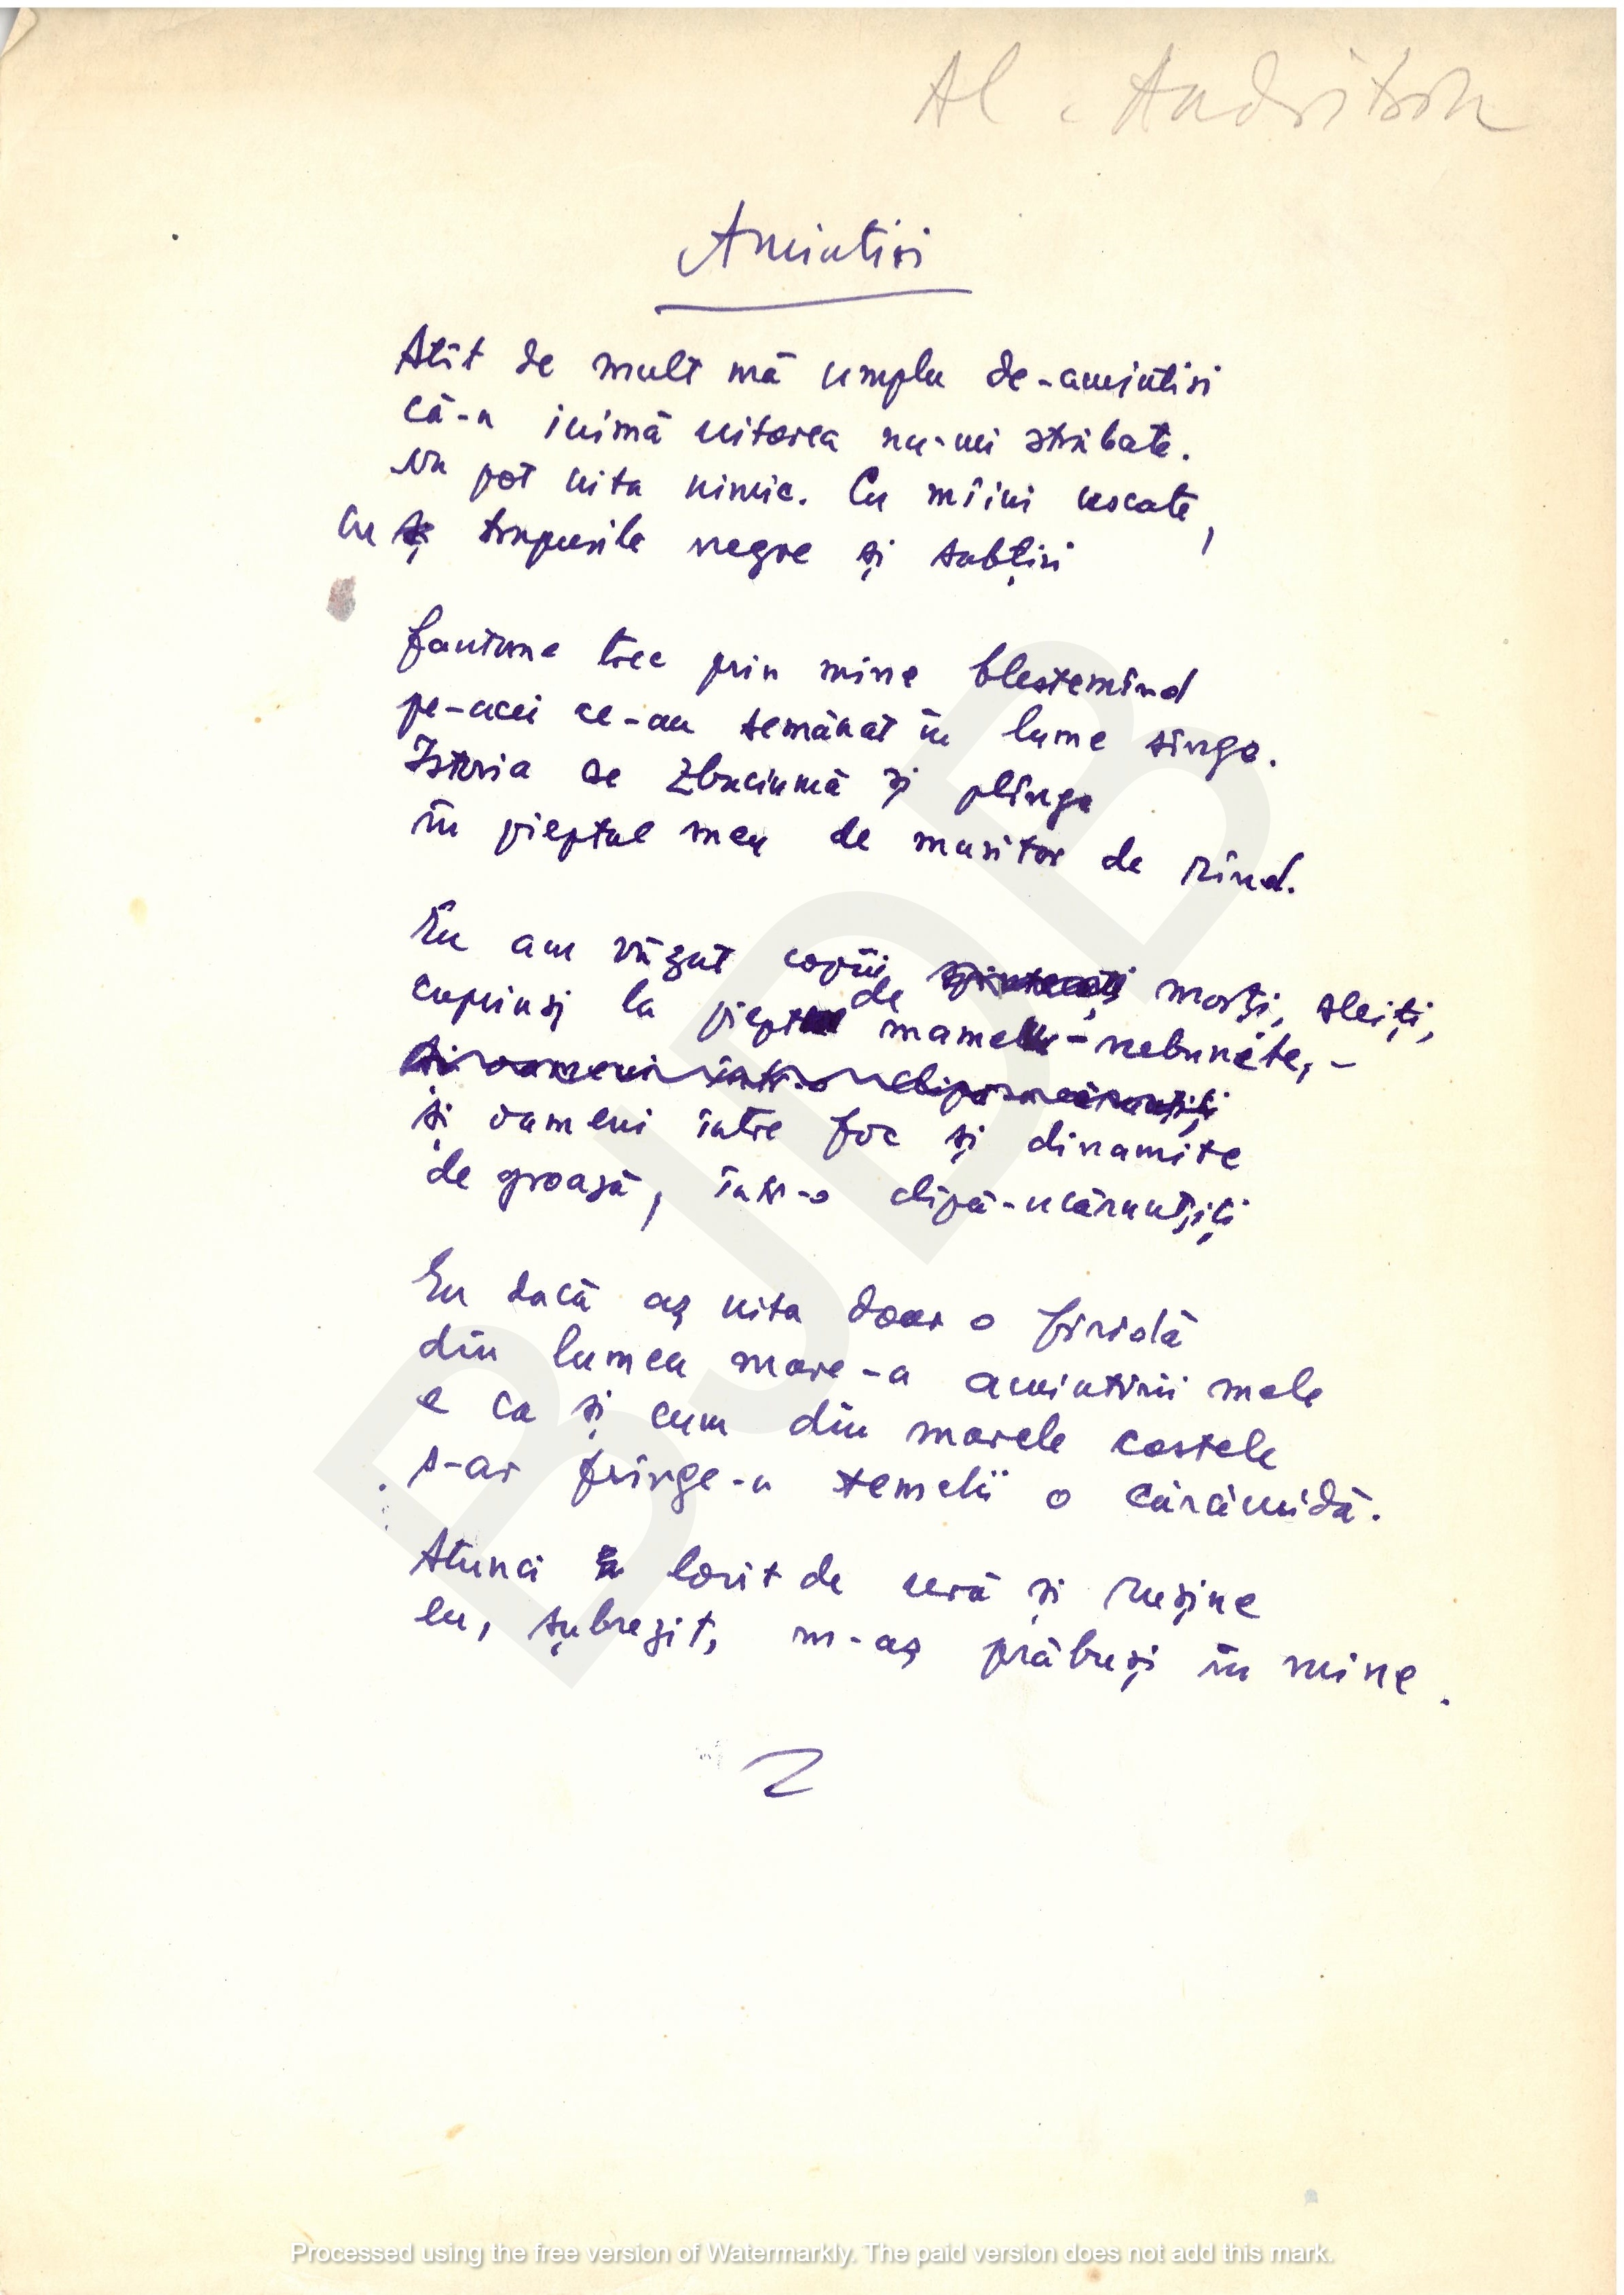 Al. Andrițoiu
Amintiri
Atît de mult mă umplu de-amintiri
că-n inimă uitarea nu-mi străbate.
Nu pot uita nimic. Cu mîini uscate,
Cu trupurile negre și subțiri
fantome trec prin mine blestemînd
pe-acei ce-au semănat în lume sînge.
Istoria se zbuciumă și plînge
în pieptul meu de muritor de rînd.
Eu am văzut copii, morți, sleiți,
cuprinși la piept de mame-nebunite, -
și oameni într-o clipă-ncărunțiți
și oameni între foc și dinamite
de groază, într-o clipă-ncărunțiți
Eu dacă aș uita doar o firidă
din lumea mare-a amintirii mele
e ca și cum din marele castele
s-ar frînge-n temelii o cărămidă.
Atunci lovit de ură și rușine
eu, șubrezit, m-aș prăbuși în mine.
BJDB
Processed using the free version of Watermarkly. The paid version does not add this mark.